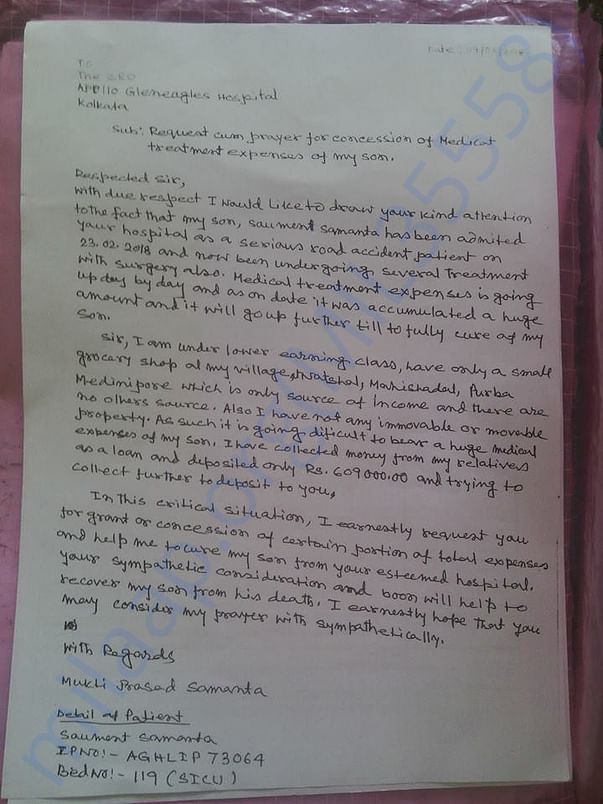 Date:
To
The CEO
Apollo Gleneagles Hospital
Kolkata
Sub: Request cum prayer for concession of Medical
treatment expenses of my son.
Respected Sir,
With due respect I would like to draw your kind attention
to the fact that my son, Saument Samanta has been admited
your hospital as a serious road accident patient on
23.02.2018 and now been undergoing several treatment
with surgery also. Medical treatment expenses is going
up day by day and as on date it was accumulated a huge
amount and it will go up further till to fully cure of my
son.
Sir, I am under lower earning class, have only a small
grocery shop at my village, Mahishadal, Purba
Medinipore which is only source of income and there are
no others source. Also I have not any immovable or movable
property. As such it is going dificult to bear a huge medical
expenses of my son. I have collected money from my relatives
as a loan and deposited only Rs. 609000.00 and trying to
collect further to deposit to you.
In this critical situation, I earnestly request you
for grant or concession of certain portion of total expenses
and help me to cure my son from your esteemed hospital.
your sympathetic consideration and boon will help to
recover my son from his death. I earnestly hope that you
may consider my prayer with sympathetically.
With Regards
Mukti Prasad Samanta
Detail of Patient
Saument Samanta
IP No:- AGHLIP 73064
Bed No:- 119 (SICU)